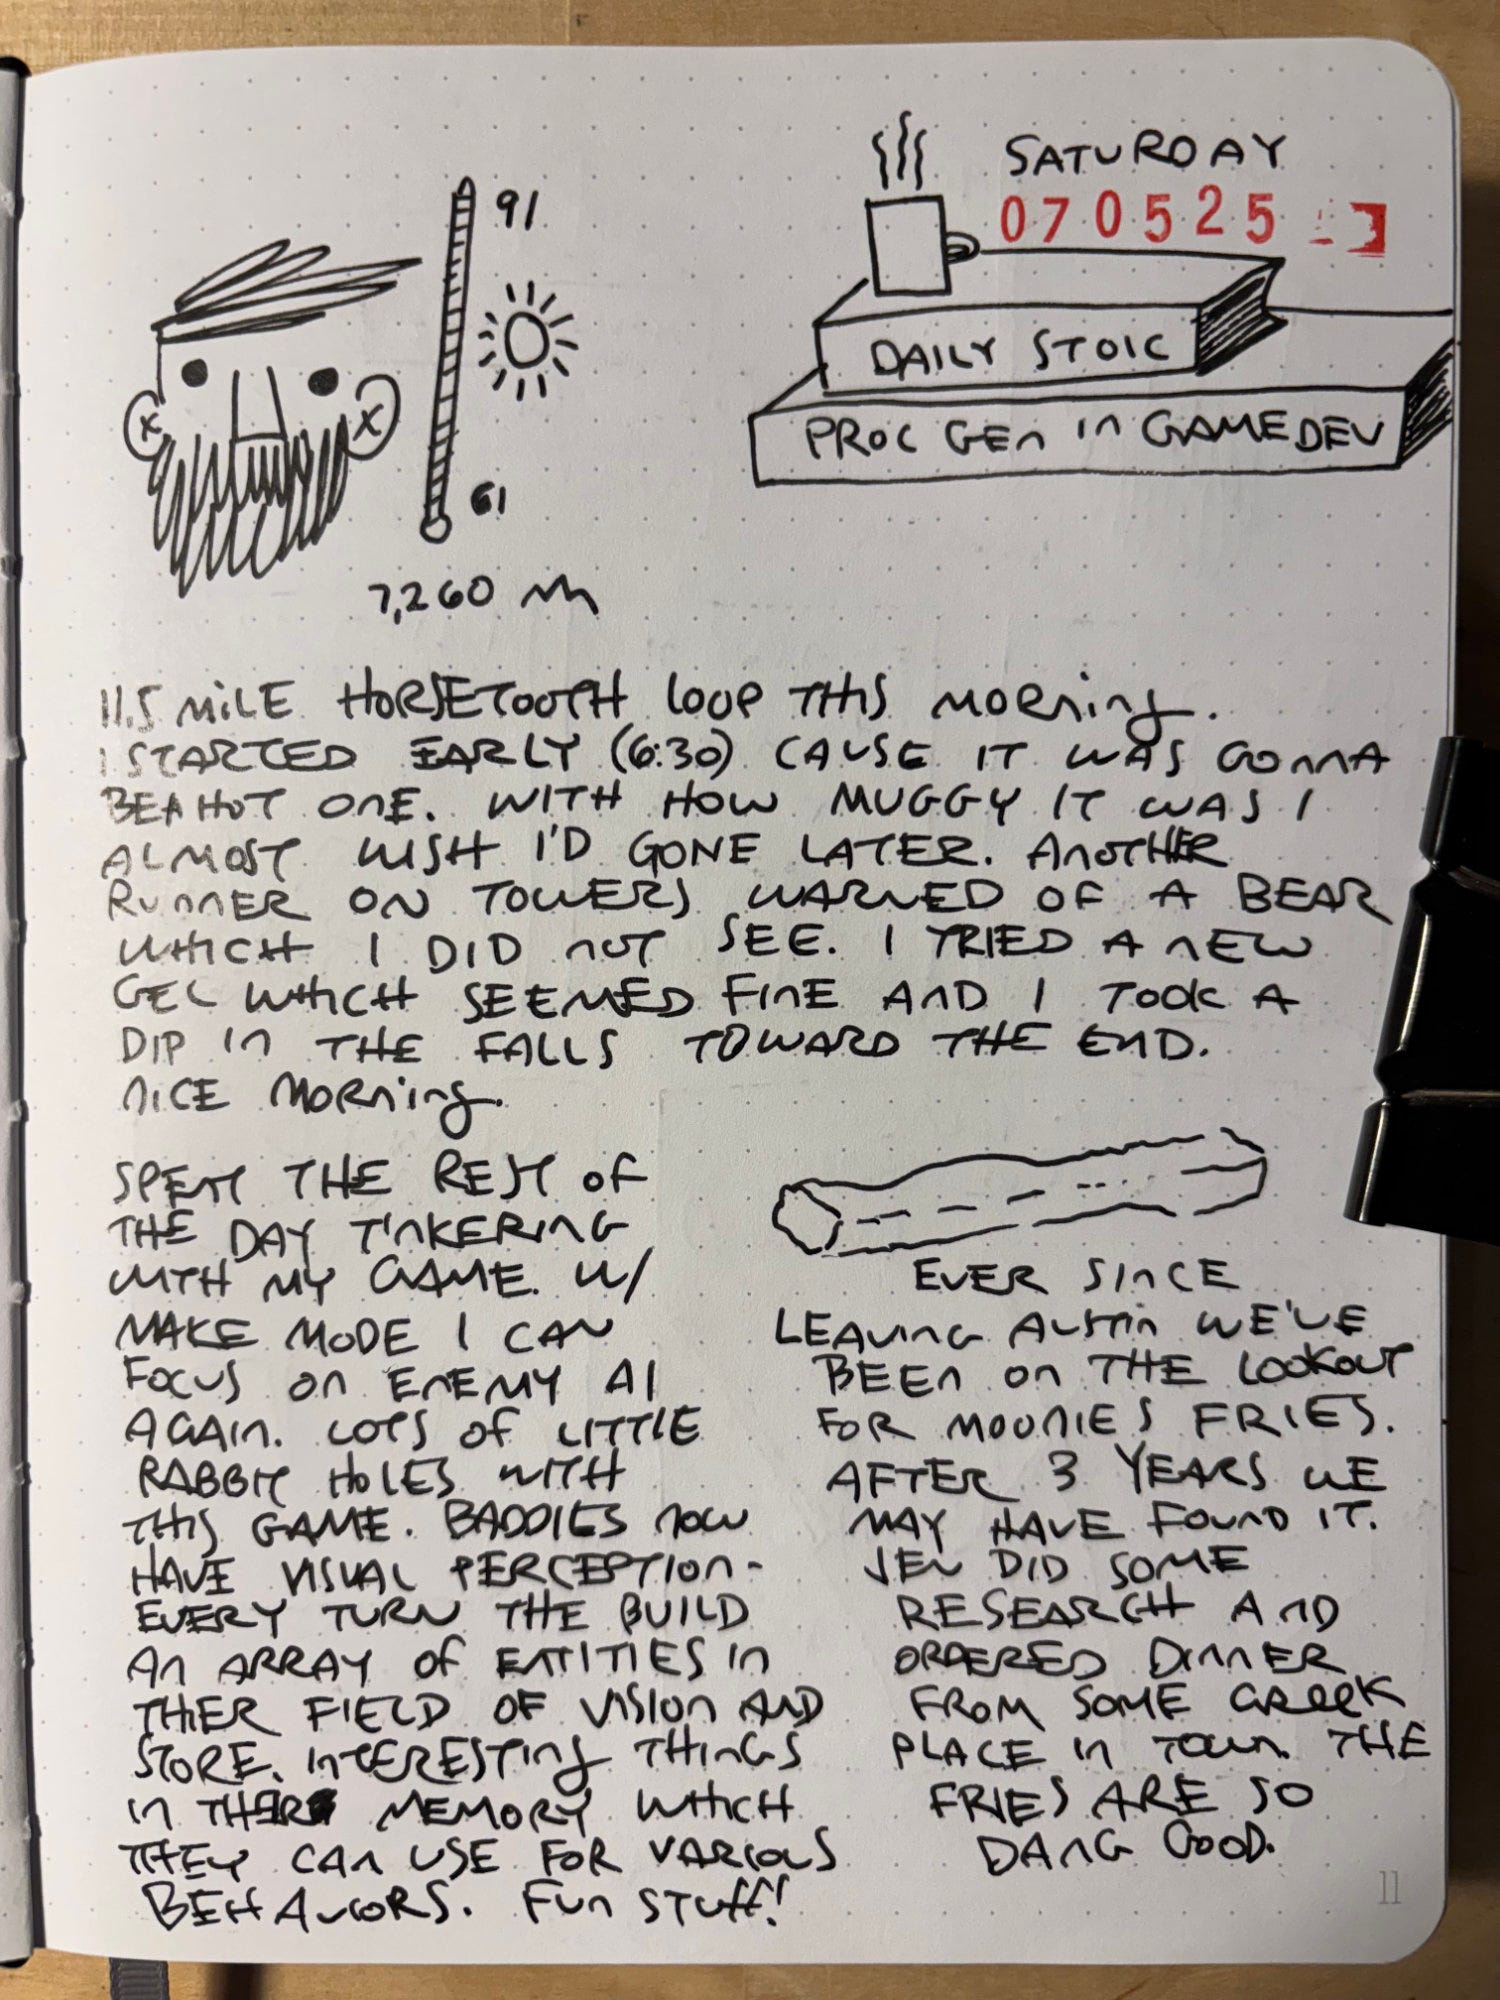 SATURDAY
070525
91
61
7,260
DAILY STOIC
PROC GEN IN GAMEDEV
11.5 MILE HORSETOOTH LOOP THIS MORNING.
I STARTED EARLY (6:30) CAUSE IT WAS GONNA
BE A HOT ONE. WITH HOW MUGGY IT WAS I
ALMOST WISH I'D GONE LATER. ANOTHER
RUNNER ON TOWERS WARNED OF A BEAR
WHICH I DID NOT SEE. I TRIED A NEW
GEL WHICH SEEMED FINE AND I TOOK A
DIP IN THE FALLS TOWARD THE END.
NICE MORNING.
SPENT THE REST OF
THE DAY TINKERING
WITH MY GAME. W/
MAKE MODE I CAN
FOCUS ON ENEMY AI
AGAIN. LOTS OF LITTLE
RABBIT HOLES WITH
THIS GAME. BADDIES NOW
HAVE VISUAL PERCEPTION-
EVERY TURN THE BUILD
AN ARRAY OF ENTITIES IN
THIER FIELD OF VISION AND
STORE INTERESTING THINGS
IN THEIR MEMORY WHICH
THEY CAN USE FOR VARIOUS
BEHAVIORS. FUN STUFF!
EVER SINCE
LEAVING AUSTIN WE'VE
BEEN ON THE LOOKOUT
FOR MOONIES FRIES.
AFTER 3 YEARS WE
MAY HAVE FOUND IT.
JEN DID SOME
RESEARCH AND
ORDERED DINNER
FROM SOME GREEK
PLACE IN TOWN. THE
FRIES ARE SO
DANG GOOD.
11